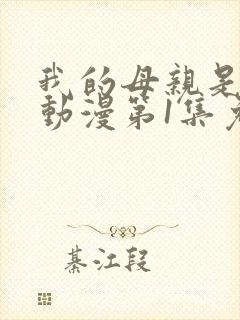 我的母親是
動漫第1集
綦江段